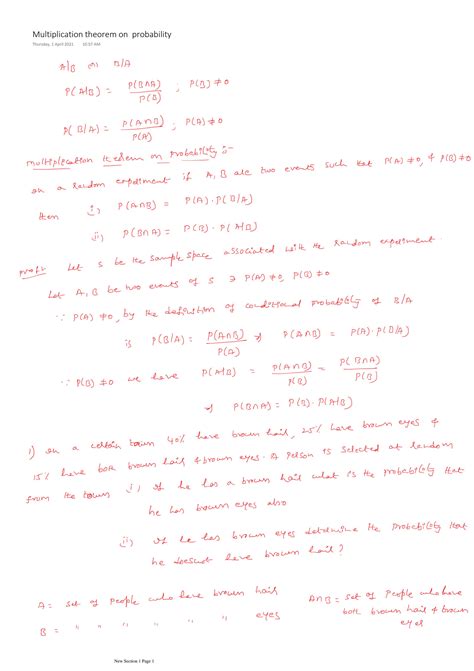 Multiplication theorem on probability
Thursday, 1 April 2021 10:57 AM
A/B or B/A
P(A/B) = P(B∩A) / P(B) ; P(B) ≠ 0
P(B/A) = P(A∩B) / P(A) ; P(A) ≠ 0
Multiplication theorem on probability :-
In a random experiment if A, B are two events such that P(A) ≠ 0, & P(B) ≠ 0
then i) P(A∩B) = P(A) · P(B/A)
ii) P(B∩A) = P(B) · P(A/B)
proof:- Let S be the sample space associated with the random experiment.
Let A, B be two events of S ∋ P(A) ≠ 0, P(B) ≠ 0
∵ P(A) ≠ 0, by the definition of conditional probability of B/A
is P(B/A) = P(A∩B) / P(A) ⇒ P(A∩B) = P(A)·P(B/A)
∵ P(B) ≠ 0 we have P(A/B) = P(A∩B) / P(B) = P(B∩A) / P(B)
⇒ P(B∩A) = P(B)·P(A/B)
1) In a certain town 40% have brown hair, 25% have brown eyes &
15% have both brown hair & brown eyes. A person is selected at random
from the town i) If he has a brown hair what is the probability that
he has brown eyes also
ii) If he has brown eyes determine the probability that
he doesnot have brown hair?
A = set of people who have brown hair A∩B = set of people who have
both brown hair & brown
eyes
B = " " " " " " eyes
New Section 1 Page 1